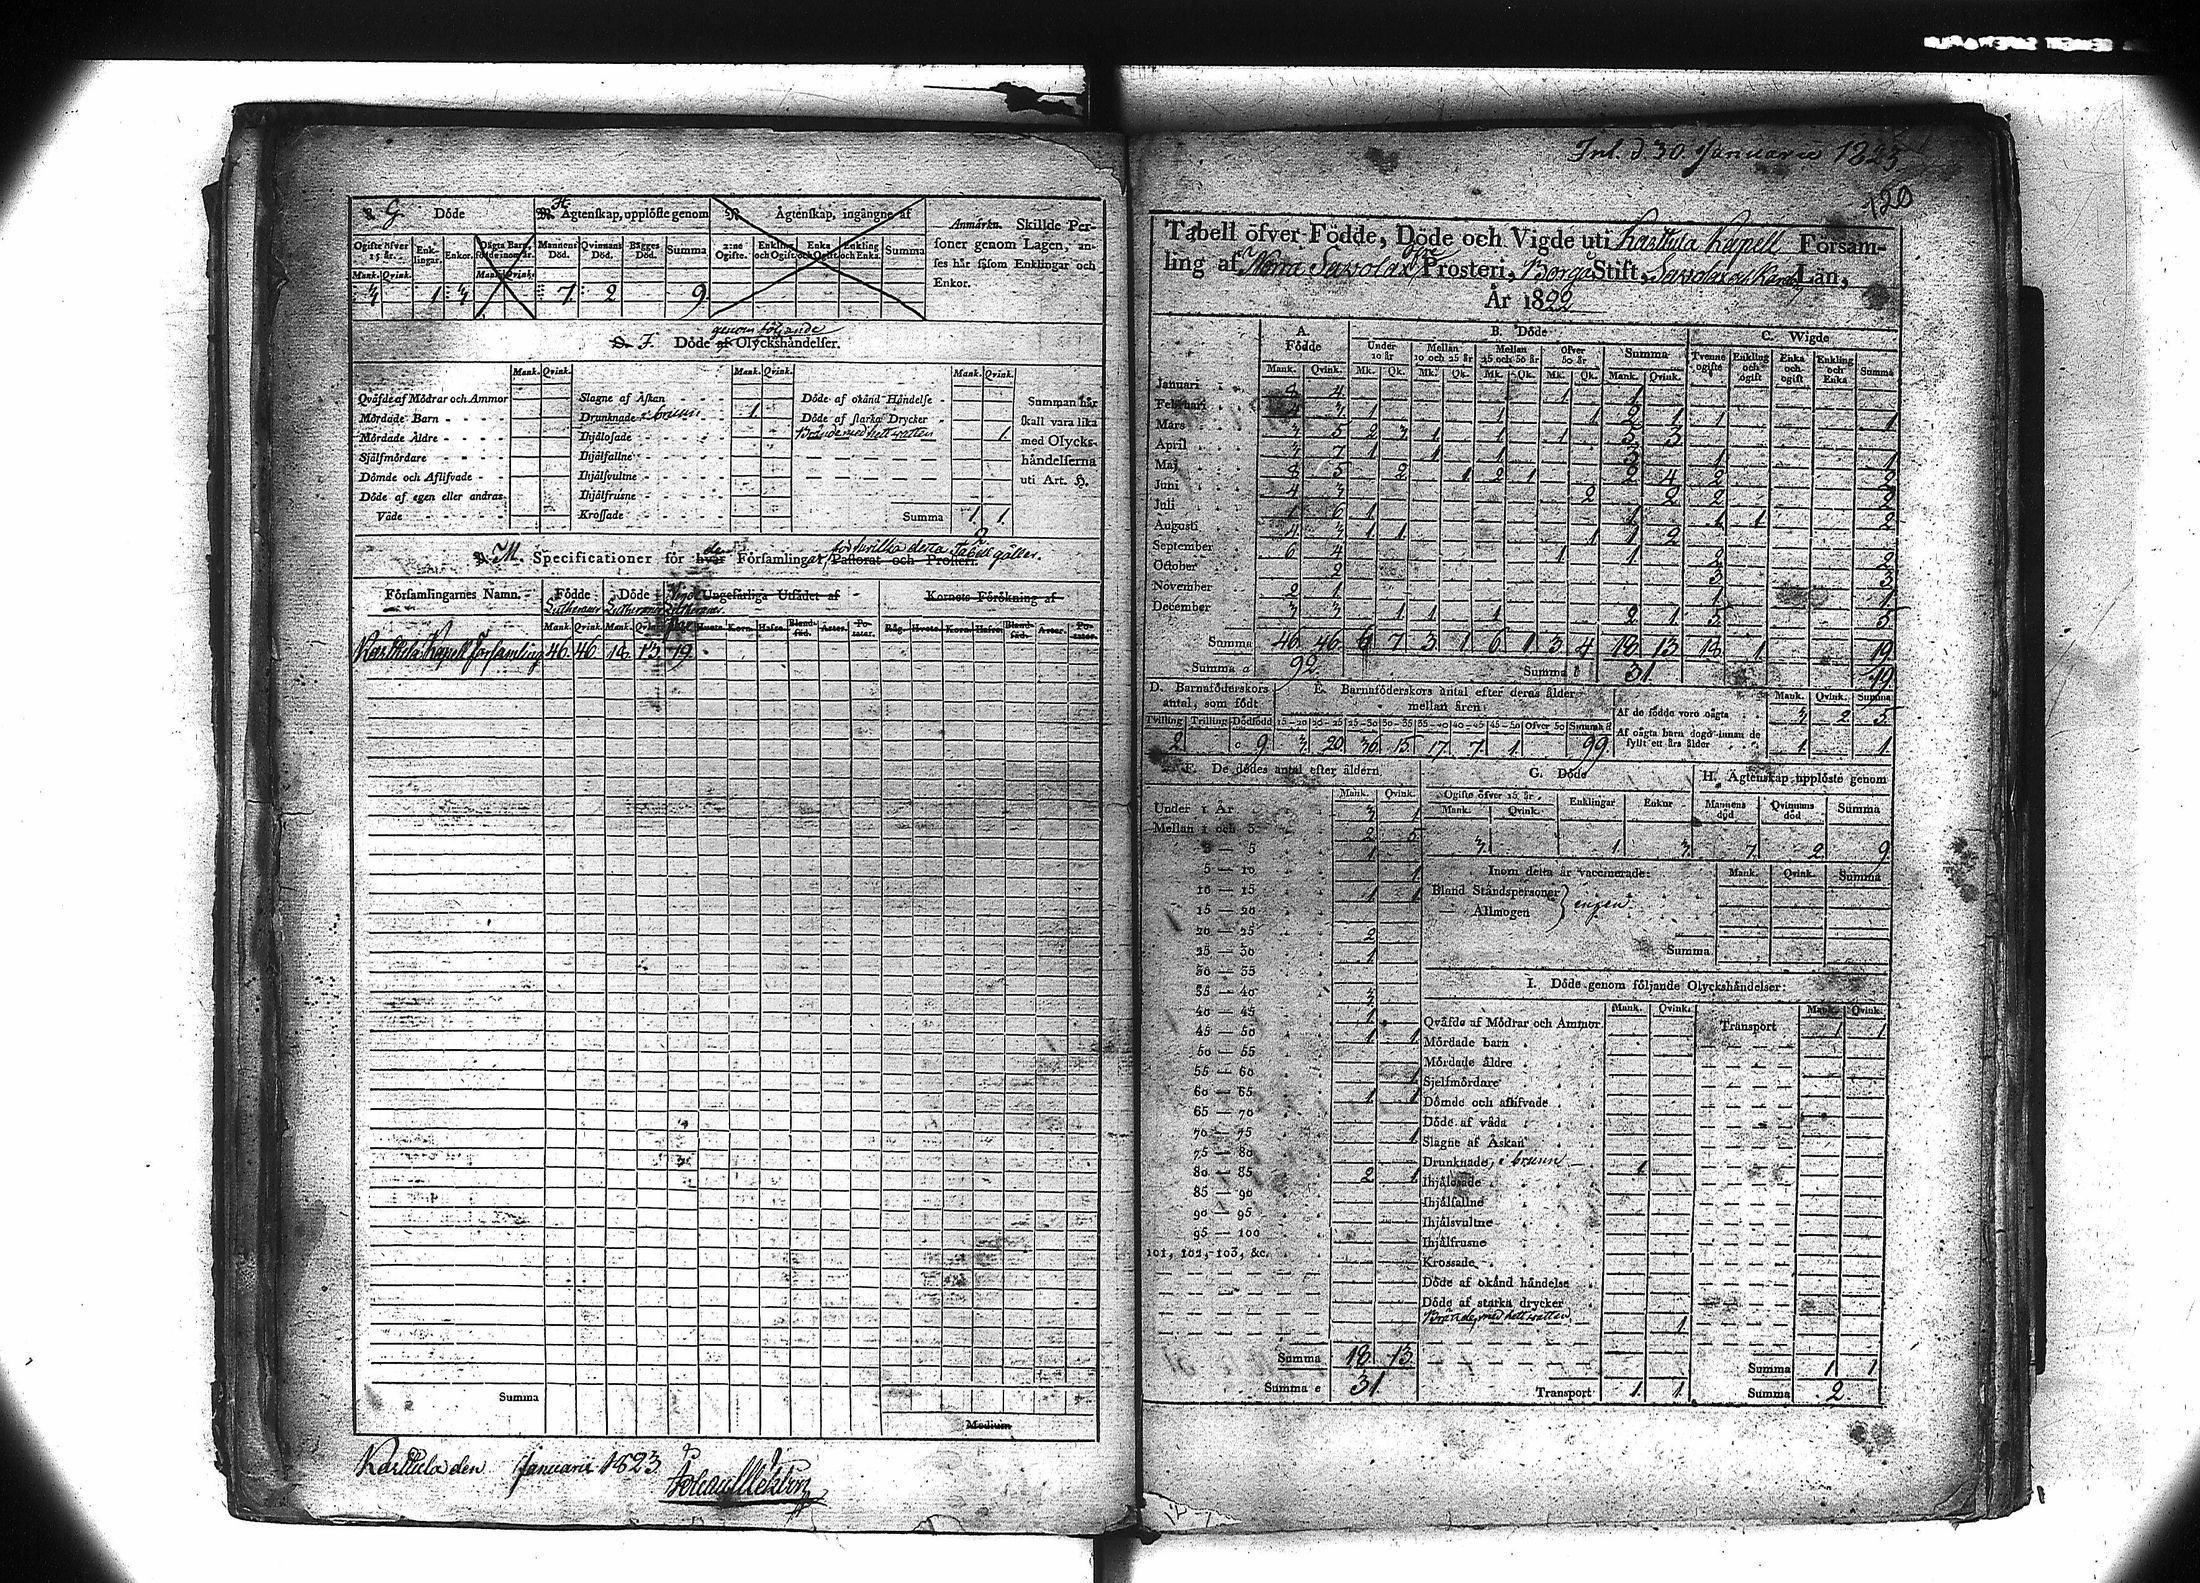 G Döde
H Ägtenskap, upplöste genom
Ägtenskap, ingångne af
Anmärkn. Skillde Per-
soner genom Lagen, an-
ses här såsom Enklingar och
Enkor.
Ogifte öfver 15 år. Enk-lingar. Enkor. Oägta Barn, födde inom år. Mannens Död. Qvinnans Död. Bägges Död. Summa 2:ne Ogifte. Enkling och Ogift. Enka och Ogift. Enkling och Enka. Summa
Mank. Qvink. Mank. Qvink.
3 1 3 7 2 9
I. Döde genom följande Olyckshändelser.
Mank. Qvink. Mank. Qvink. Mank. Qvink.
Qväfde af Mödrar och Ammor
Mördade Barn
Mördade Äldre
Självmördare
Dömde och Aflifvade
Döde af egen eller andras
Våde
Slagne af Åskan
Drunknade i brunn 1.
Ihjälosade
Ihjälfallne
Ihjälsvultne
Ihjälfrusne
Krossade
Döde af okänd Händelse
Döde af starka Drycker
Brände med hett vatten 1.
Summa 1. 1.
2
Summan här
skall vara lika
med Olycks-
händelserna
uti Art. H.
M. Specificationer för den Församlingar, för hvilka denna Tabell gäller.
Pastorat och Prosteri.
Församlingarnes Namn. Födde Döde Vigde Ungefärliga Utsädet af Kornets Förökning af
Lutheraner Lutheraner Lutheraner
Mank. Qvink. Mank. Qvink. Par Hvete. Korn. Hafre. Bland-säd. Ärter. Po-tater. Råg. Hvete. Korn. Hafre. Bland-säd. Ärter. Po-tater.
Karttula Kapell Församling 46 46 18 13 19
Summa
Medium
Karttula den Januarii 1823.
Inl. d 30 Januarii 1823
120
Tabell öfver Födde, Döde och Vigde uti Karttula Kapell Församling
ling af Norra Savolax Öfre Prosteri, Borgå Stift, Savolax och Karel. Län,
År 1822
A. Födde B. Döde C. Wigde
Under 10 år Mellan 10 och 25 år Mellan 25 och 50 år Öfver 50 år Summa Tvenne ogifte Enkling och ogift Enka och ogift Enkling och Enka Summa
Mank. Qvink. Mk. Qk. Mk. Qk. Mk. Qk. Mk. Qk. Mank. Qvink.
Januari 8 4 1 1
Februari 4 3 1 1 1 2 1 1 1
Mars 3 5 2 3 1 1 1 5 3
April 3 7 1 1 1 3 1 1
Maj 8 5 2 1 2 1 2 4 2 2
Juni 4 3 2 2 2 2
Juli 1 6 1 1 1 1 2
Augusti 4 3 1 1 1 1 2
September 6 4 1 1 2 2
October 2 3 3
November 2 1 1 1
December 3 3 1 1 1 2 1 5 5
Summa 46 46 6 7 3 1 6 1 3 4 18 13 18 1 19
Summa a 92 Summa b 31 19
D. Barnaföderskors antal, som födt
E. Barnaföderskors antal efter deras ålder mellan åren:
Tvilling Trilling Dödfödd 15-20 20-25 25-30 30-35 35-40 40-45 45-50 Öfver 50 Summa d
2 9 3 20 36 15 17 7 1 99
Mank. Qvink. Summa
Af de födde voro oägta 3 2 5
Af oägta barn dogo innan de fyllt ett års ålder 1 1
F. De dödes antal efter åldern
Mank. Qvink.
Under 1 År 3 1
Mellan 1 och 3 2 5
3 — 5 1
5 — 10 1
10 — 15 1 1
15 — 20
20 — 25 2
25 — 30 1
30 — 35
35 — 40 3
40 — 45 1
45 — 50 1 1
50 — 55
55 — 60 1
60 — 65 1 1
65 — 70
70 — 75 1
75 — 80
80 — 85 2 1
85 — 90
90 — 95
95 — 100
101, 102, 103, &c.
Summa 18 13
Summa e 31
G. Döde
Ogifte öfver 15 år Enklingar Enkor
Mank. Qvink.
3 1 3
H. Ägtenskap upplöste genom
Mannens död Qvinnans död Summa
7 2 9
Inom detta år vaccinerade: Mank. Qvink. Summa
Bland Ståndspersoner
— Allmogen
engen
Summa
I. Döde genom följande Olyckshändelser:
Mank. Qvink. Mank. Qvink.
Qväfde af Mödrar och Ammor
Mördade barn
Mördade äldre
Sjelfmördare
Dömde och aflifvade
Döde af våda
Slagne af Åskan
Drunknade, i brunn 1
Ihjälosade
Ihjälfallne
Ihjälsvultne
Ihjälfrusne
Krossade
Döde af okänd händelse
Döde af starka drycker
Brände, med hett vatten 1
Transport 1 1
Transport 1 1
Summa 1 1
Summa 2